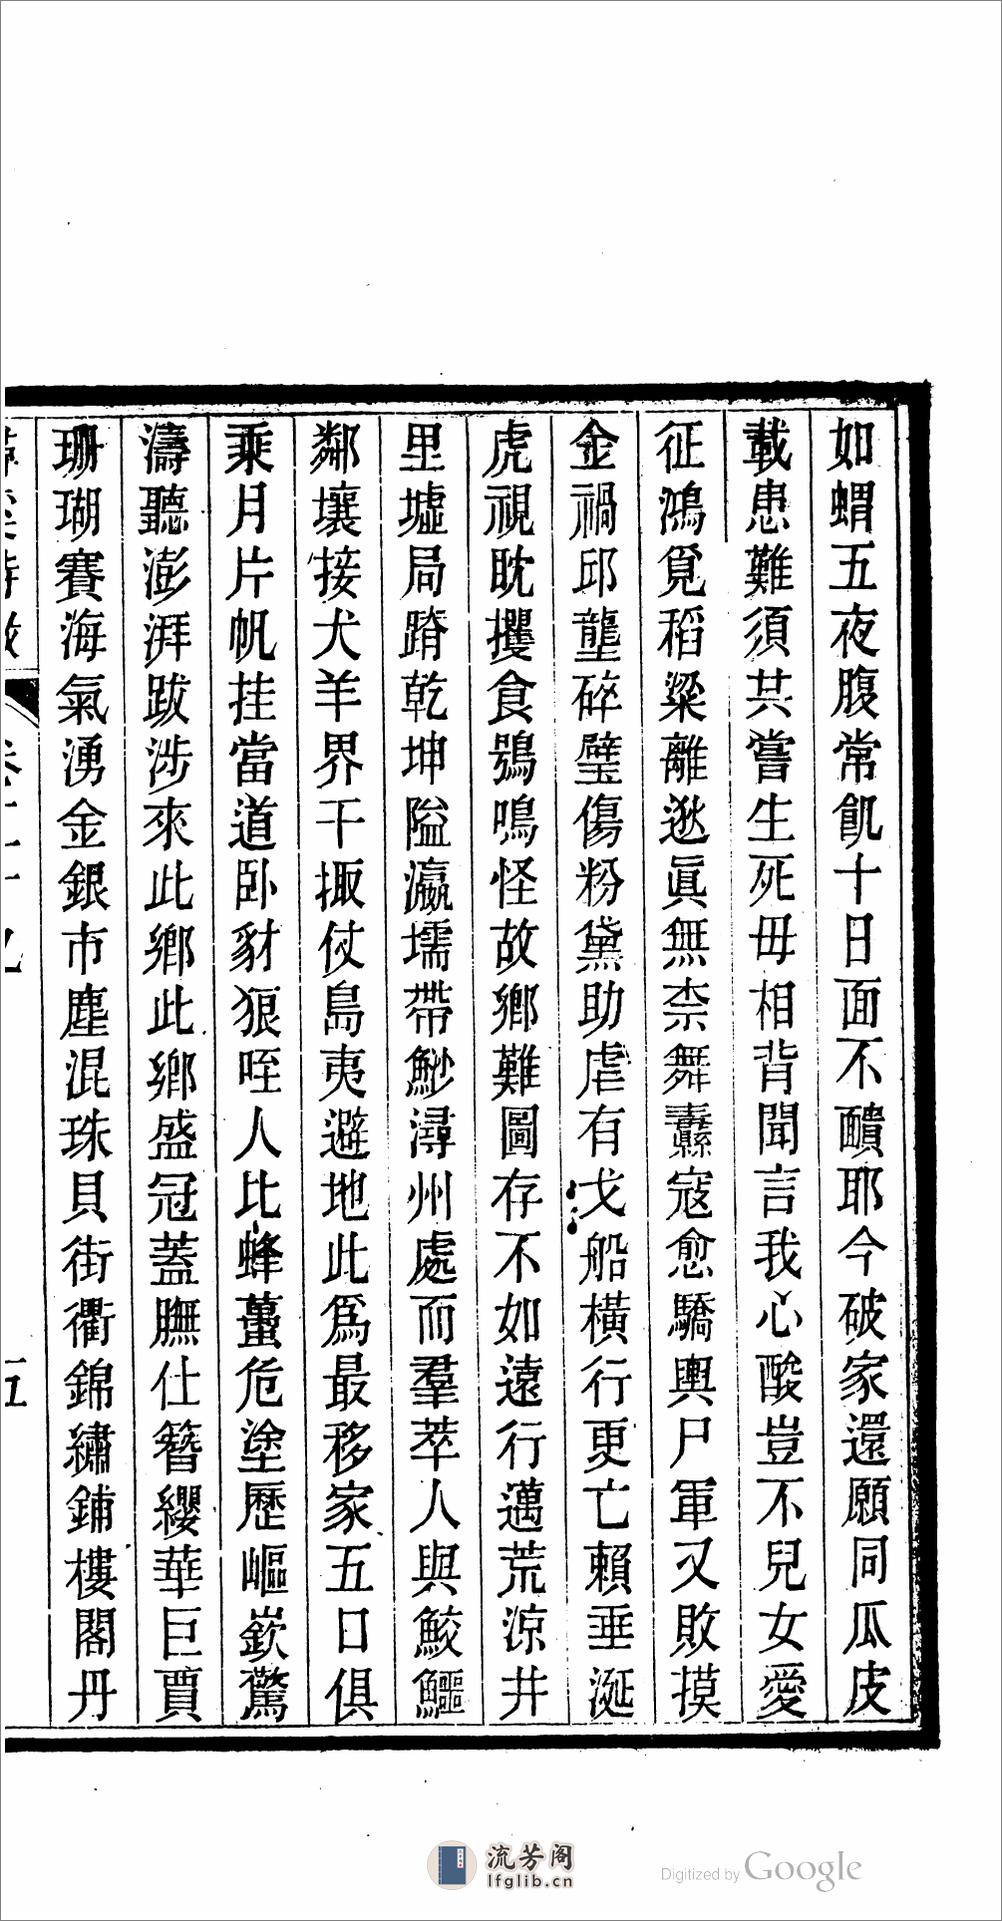 如蝟五夜腹常飢十日面不靧耶今破家還願同瓜皮
載患難須共嘗生死毋相背聞言我心酸豈不兒女愛
征鴻覓稻粱離逖眞無柰舞纛寇愈驕輿尸軍又敗摸
金禍邱壟碎璧傷粉黛助虐有戈船橫行更亡賴垂涎
虎視眈攫食鴞鳴怪故鄉難圖存不如遠行邁荒涼井
里墟局蹐乾坤隘瀛壖帶魦潯州處而羣萃人與鮫鱷
鄰壤接犬羊界干掫仗島夷避地此爲最移家五口俱
乘月片帆挂當道臥豺狼咥人比蜂蠆危塗歷嶇嶔驚
濤聽澎湃跋涉來此鄉此鄉盛冠蓋膴仕簪纓華巨賈
珊瑚賽海氣湧金銀市塵混珠貝街衢錦繡鋪樓閣丹
五
流芳阁
lfglib.cn
Digitized by Google